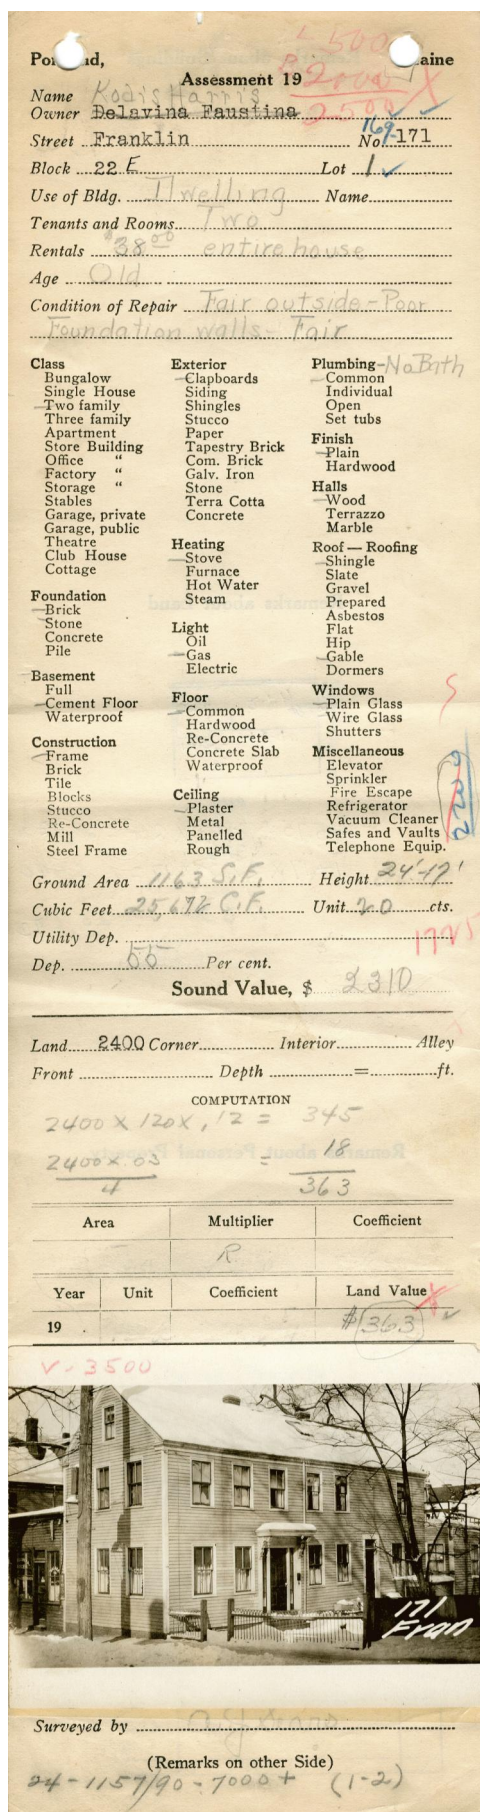 L 500
Portland, Maine
B 2000
Assessment 19
2500
Name Kodis Harris
Owner Delavina Faustina
Street Franklin No. 169-171
Block 22 E Lot 1
Use of Bldg. Dwelling Name
Tenants and Rooms Two
Rentals $38.00 entire house
Age Old
Condition of Repair Fair outside-Poor
Foundation walls- Fair
Class
Bungalow
Single House
Two family
Three family
Apartment
Store Building
Office "
Factory "
Storage "
Stables
Garage, private
Garage, public
Theatre
Club House
Cottage
Foundation
Brick
Stone
Concrete
Pile
Basement
Full
Cement Floor
Waterproof
Construction
Frame
Brick
Tile
Blocks
Stucco
Re-Concrete
Mill
Steel Frame
Exterior
Clapboards
Siding
Shingles
Stucco
Paper
Tapestry Brick
Com. Brick
Galv. Iron
Stone
Terra Cotta
Concrete
Heating
Stove
Furnace
Hot Water
Steam
Light
Oil
Gas
Electric
Floor
Common
Hardwood
Re-Concrete
Concrete Slab
Waterproof
Ceiling
Plaster
Metal
Panelled
Rough
Plumbing-No Bath
Common
Individual
Open
Set tubs
Finish
Plain
Hardwood
Halls
Wood
Terrazzo
Marble
Roof — Roofing
Shingle
Slate
Gravel
Prepared
Asbestos
Flat
Hip
Gable
Dormers
Windows
Plain Glass
Wire Glass
Shutters
Miscellaneous
Elevator
Sprinkler
Fire Escape
Refrigerator
Vacuum Cleaner
Safes and Vaults
Telephone Equip.
Ground Area 1163 S.F. Height 24'-17'
Cubic Feet 25,672 C.F. Unit 20 cts.
Utility Dep. 1725
Dep. 55 Per cent.
Sound Value, $ 2310
Land 2400 Corner Interior Alley
Front Depth = ft.
COMPUTATION
2400 x 120 x .12 = 345
2400 x .03 = 18
4 363
Area Multiplier Coefficient
R
Year Unit Coefficient Land Value
19 $363
V-3500
171
Fran
Surveyed by
(Remarks on other Side)
24-1157/90-7000+ (1-2)